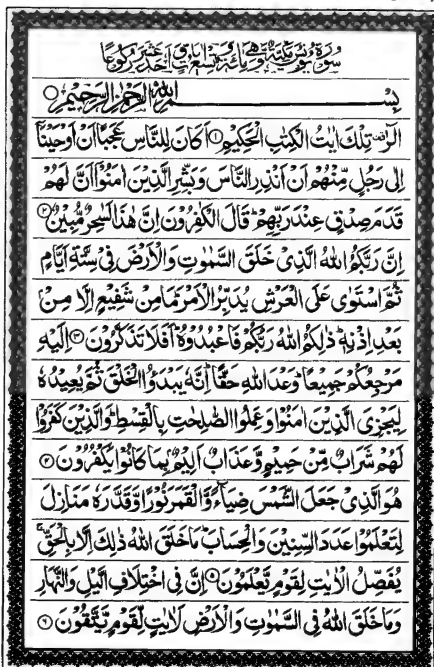 سُوْرَةُ يُوْنُسَ مَكِّيَّةٌ وَّهِيَ مِائَةٌ وَّتِسْعُ اٰيَاتٍ وَّاَحَدَ عَشَرَ رُكُوْعًا
بِسْمِ اللّٰهِ الرَّحْمٰنِ الرَّحِيْمِ ○
الٓرٰ تِلْكَ اٰيٰتُ الْكِتٰبِ الْحَكِيْمِ ① اَكَانَ لِلنَّاسِ عَجَبًا اَنْ اَوْحَيْنَآ
اِلٰى رَجُلٍ مِّنْهُمْ اَنْ اَنْذِرِ النَّاسَ وَبَشِّرِ الَّذِيْنَ اٰمَنُوْٓا اَنَّ لَهُمْ
قَدَمَ صِدْقٍ عِنْدَ رَبِّهِمْ ؕ قَالَ الْكٰفِرُوْنَ اِنَّ هٰذَا لَسٰحِرٌ مُّبِيْنٌ ②
اِنَّ رَبَّكُمُ اللّٰهُ الَّذِيْ خَلَقَ السَّمٰوٰتِ وَالْاَرْضَ فِيْ سِتَّةِ اَيَّامٍ
ثُمَّ اسْتَوٰى عَلَى الْعَرْشِ يُدَبِّرُ الْاَمْرَ ؕ مَا مِنْ شَفِيْعٍ اِلَّا مِنْۢ
بَعْدِ اِذْنِهٖ ؕ ذٰلِكُمُ اللّٰهُ رَبُّكُمْ فَاعْبُدُوْهُ ؕ اَفَلَا تَذَكَّرُوْنَ ③ اِلَيْهِ
مَرْجِعُكُمْ جَمِيْعًا ؕ وَعْدَ اللّٰهِ حَقًّا ؕ اِنَّهٗ يَبْدَؤُا الْخَلْقَ ثُمَّ يُعِيْدُهٗ
لِيَجْزِيَ الَّذِيْنَ اٰمَنُوْا وَعَمِلُوا الصّٰلِحٰتِ بِالْقِسْطِ ؕ وَالَّذِيْنَ كَفَرُوْا
لَهُمْ شَرَابٌ مِّنْ حَمِيْمٍ وَّعَذَابٌ اَلِيْمٌۢ بِمَا كَانُوْا يَكْفُرُوْنَ ④
هُوَ الَّذِيْ جَعَلَ الشَّمْسَ ضِيَآءً وَّالْقَمَرَ نُوْرًا وَّقَدَّرَهٗ مَنَازِلَ
لِتَعْلَمُوْا عَدَدَ السِّنِيْنَ وَالْحِسَابَ ؕ مَا خَلَقَ اللّٰهُ ذٰلِكَ اِلَّا بِالْحَقِّ ۚ
يُفَصِّلُ الْاٰيٰتِ لِقَوْمٍ يَّعْلَمُوْنَ ⑤ اِنَّ فِي اخْتِلَافِ الَّيْلِ وَالنَّهَارِ
وَمَا خَلَقَ اللّٰهُ فِي السَّمٰوٰتِ وَالْاَرْضِ لَاٰيٰتٍ لِّقَوْمٍ يَّتَّقُوْنَ ⑥